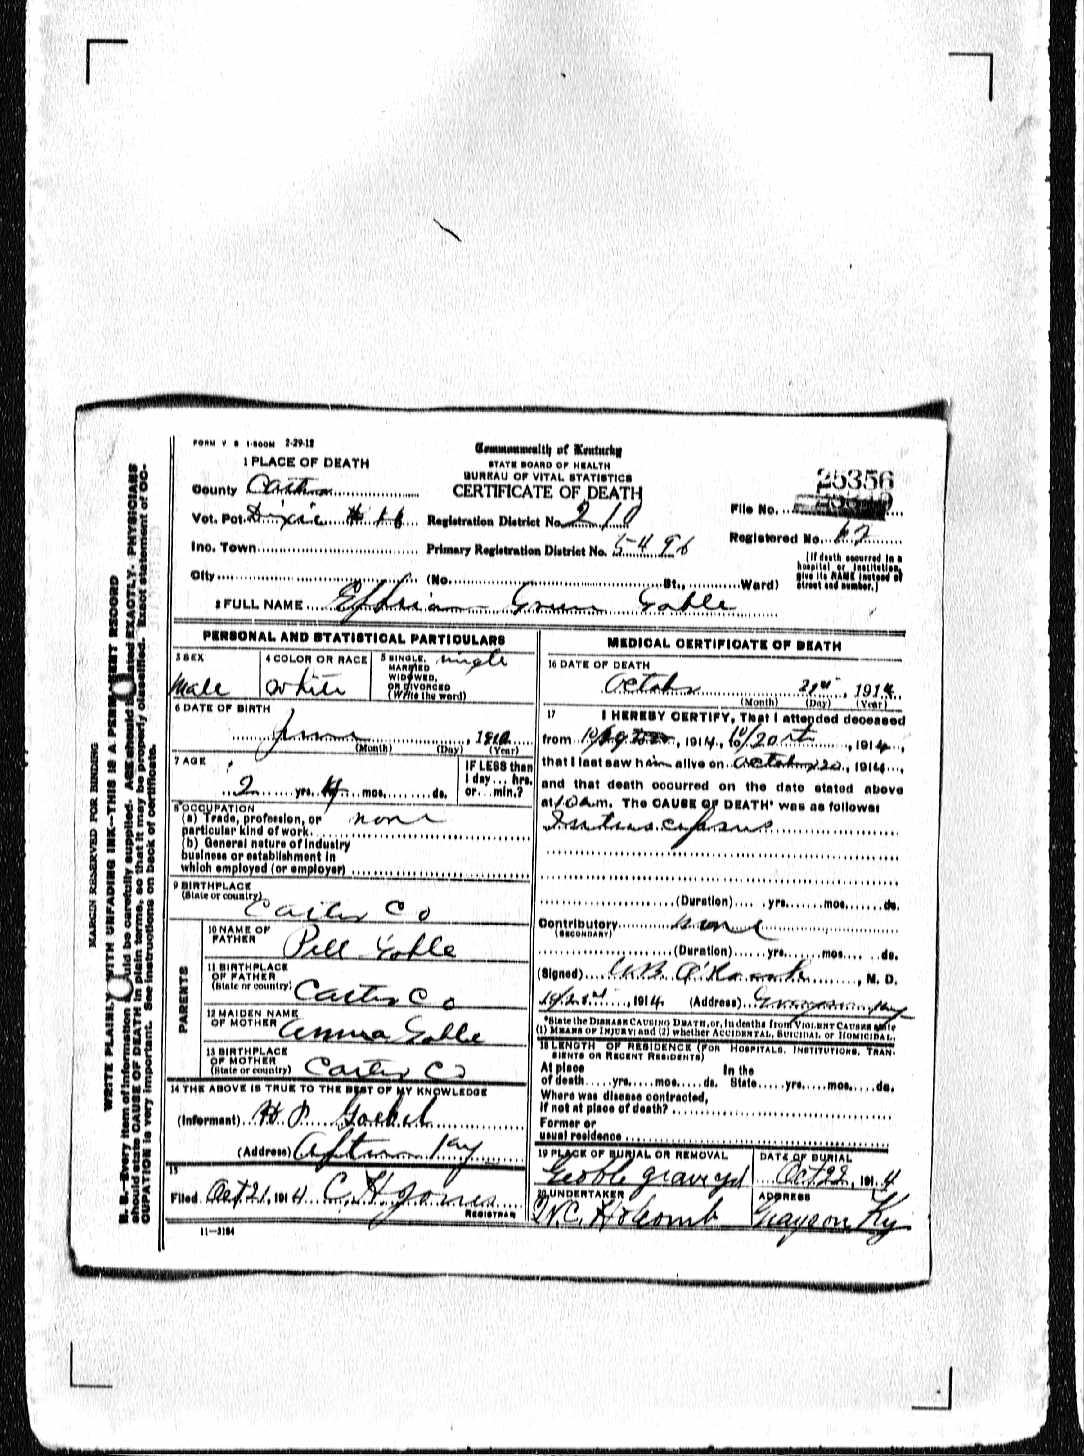 FORM V S 1-500M 2-29-12
Commonwealth of Kentucky
STATE BOARD OF HEALTH
BUREAU OF VITAL STATISTICS
CERTIFICATE OF DEATH
1 PLACE OF DEATH
County Carter
Vot. Pct. Dixie # 16
Inc. Town
City (No. St., Ward)
Registration District No. 210
Primary Registration District No. 5496
25356
File No.
Registered No. 62
[If death occurred in a
hospital or institution,
give its NAME instead of
street and number.]
2 FULL NAME Ephriam Green Goble
PERSONAL AND STATISTICAL PARTICULARS
3 SEX
Male
4 COLOR OR RACE
White
5 SINGLE, MARRIED WIDOWED, OR DIVORCED (Write the word)
single
6 DATE OF BIRTH
June, 1912
(Month) (Day) (Year)
7 AGE
2 yrs. 4 mos. ds.
IF LESS than
1 day... hrs.
or...min.?
8 OCCUPATION
(a) Trade, profession, or
particular kind of work. none
(b) General nature of industry
business or establishment in
which employed (or employer)
9 BIRTHPLACE
(State or country)
Carter Co
PARENTS
10 NAME OF
FATHER
Goble
11 BIRTHPLACE
OF FATHER
(State or country)
Carter Co
12 MAIDEN NAME
OF MOTHER
Anna Goble
13 BIRTHPLACE
OF MOTHER
(State or country)
Carter Co
14 THE ABOVE IS TRUE TO THE BEST OF MY KNOWLEDGE
(Informant)
(Address) Ky
15
Filed Oct 21, 1914 C H Jones
REGISTRAR
11-3184
MEDICAL CERTIFICATE OF DEATH
16 DATE OF DEATH
October 21st, 1914
(Month) (Day) (Year)
17 I HEREBY CERTIFY, That I attended deceased
from, 1914, to 10/20, 1914,
that I last saw him alive on October 20, 1914,
and that death occurred on the date stated above
at 10 a m. The CAUSE OF DEATH* was as follows:
(Duration) yrs. mos. ds.
Contributory none
(SECONDARY)
(Duration) yrs. mos. ds.
(Signed), M. D.
, 1914 (Address) Grayson Ky
*State the DISEASE CAUSING DEATH, or, in deaths from VIOLENT CAUSES state
(1) MEANS OF INJURY; and (2) whether ACCIDENTAL, SUICIDAL or HOMICIDAL.
18 LENGTH OF RESIDENCE (FOR HOSPITALS, INSTITUTIONS, TRAN-
SIENTS OR RECENT RESIDENTS)
At place In the
of death yrs. mos. ds. State yrs. mos. ds.
Where was disease contracted,
if not at place of death?
Former or
usual residence
19 PLACE OF BURIAL OR REMOVAL
Goble graveyd
DATE OF BURIAL
Oct 22, 1914
20 UNDERTAKER
W.C. Holcomb
ADDRESS
Grayson Ky
MARGIN RESERVED FOR BINDING
WRITE PLAINLY WITH UNFADING INK--THIS IS A PERMANENT RECORD
N. B.-Every item of information should be carefully supplied. AGE should be stated EXACTLY. PHYSICIANS
should state CAUSE OF DEATH in plain terms, so that it may be properly classified. Exact statement of OC-
CUPATION is very important. See instructions on back of certificate.